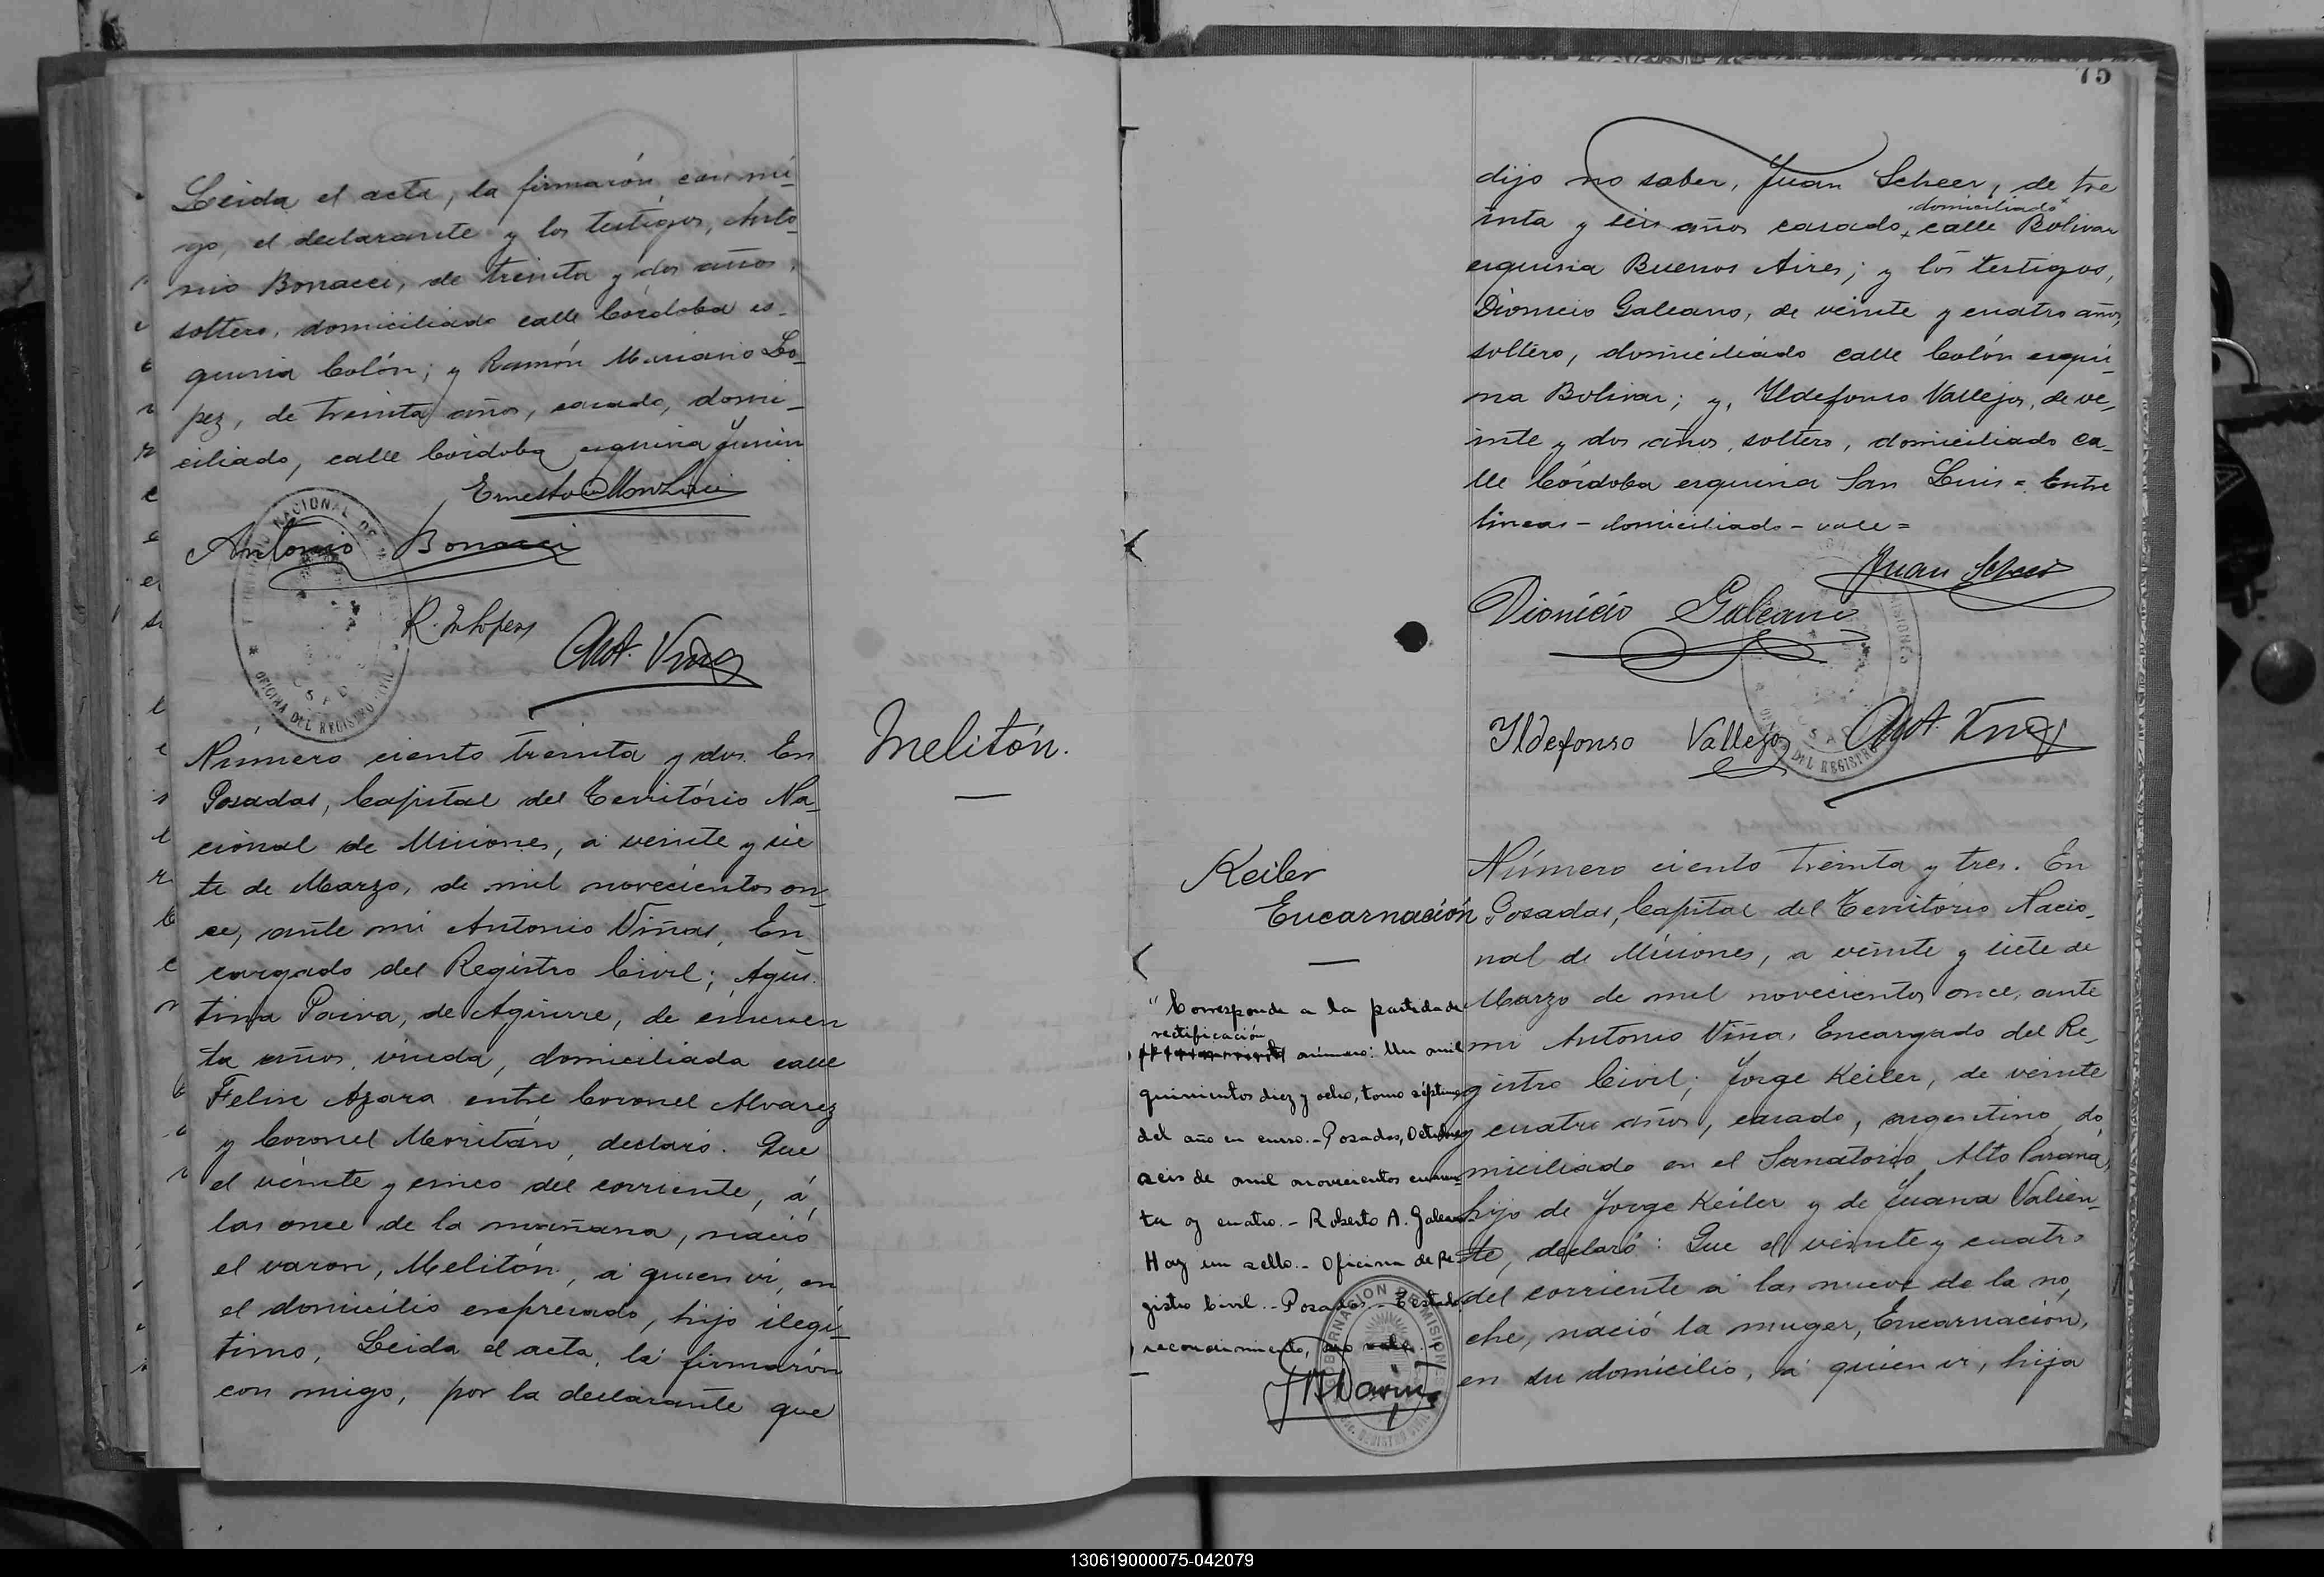 Leida el acta, la firmarón con mi-
go, el declarante y los testigos, Anto-
nio Bonacci, de treinta y dos años,
soltero, domiciliado calle Córdoba es-
quina Colón; y Ramón Mariano Lo-
pez, de treinta años, casado, domi-
ciliado, calle Córdoba esquina Junin
Ernesto
Antonio Bonacci
R. M Lopez
Ant. Viñas
Número ciento treinta y dos. En
Posadas, Capital del Território Na-
cional de Misiones, á veinte y sie
te de Marzo, de mil novecientos on-
ce, ante mi Antonio Viñas, En
cargado del Registro Civil; Agus-
tina Paiva, de Aguirre, de cincuen
ta años, viuda, domiciliada calle
Felix Azara entre Coronel Alvarez
y Coronel Moritán, declaró. Que
el veinte y cinco del corriente, á
las once de la mañana, nació
el varon, Melitón, á quien vi, en
el domicilio expresado, hijo ilegí-
timo, Leida el acta, la firmarón
con migo, por la declarante que
Melitón.
75
dijo no saber, Juan Scheer, de tre
inta y seis años casado, calle Bolivar
domiciliado
esquina Buenos Aires; y los testigos,
Dionicio Galeano, de veinte y cuatro años,
soltero, domiciliado calle Colón esqui-
na Bolivar; y, Ildefonso Vallejos, de ve-
inte y dos años, soltero, domiciliado ca-
lle Córdoba esquina San Luis = Entre
lineas - domiciliado - vale =
Juan Scheer
Dionicio Galeano
Ildefonso Vallejos
Ant. Viñas
Keiler
Encarnación
"Corresponde a la partida de
rectificación
número: Un mil
quinientos diez y ocho, tomo séptimo
del año en curso.- Posadas, Octubre
seis de mil novecientos cuaren-
ta y cuatro.- Roberto A. Galeano
Hay un sello.- Oficina de Re-
gistro Civil.- Posadas.- Testado
reconocimiento, no vale.
Número ciento treinta y tres. En
Posadas, Capital del Território Nacio-
nal de Misiones, a veinte y siete de
Marzo de mil novecientos once, ante
mi Antonio Viñas Encargado del Re-
gistro Civil; Jorge Keiler, de veinte
y cuatro años, casado, argentino, do-
miciliado en el Sanatorio Alto Paraná,
hijo de Jorge Keiler y de Juana Valien-
te, declaró: Que el veinte y cuatro
del corriente á las nueve de la no-
che, nació la muger, Encarnación,
en su domicilio, á quien vi, hija
130619000075-042079